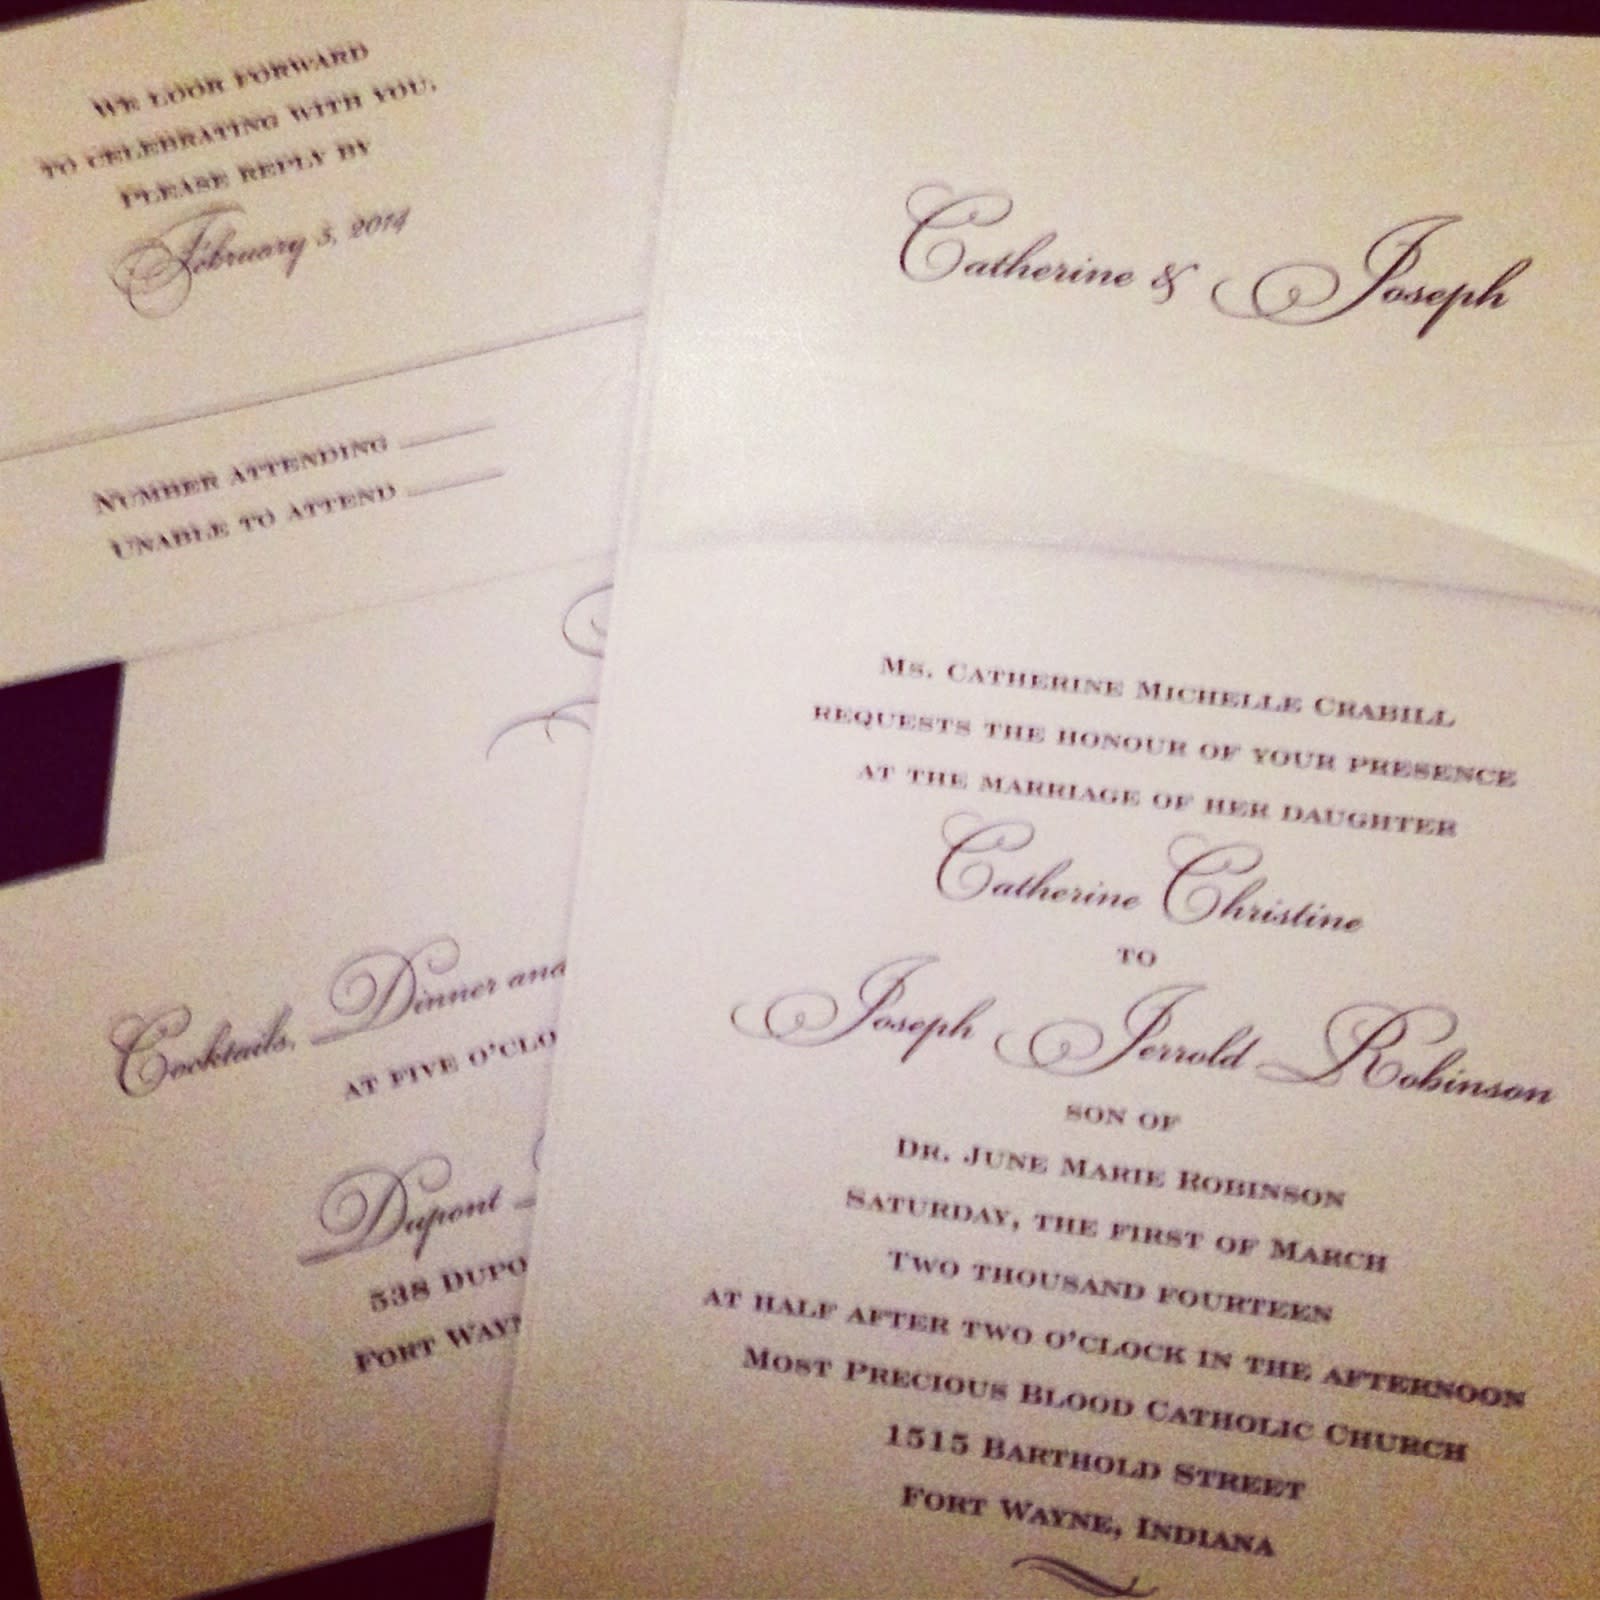 WE LOOK FORWARD
TO CELEBRATING WITH YOU,
PLEASE REPLY BY
February 5, 2014
NUMBER ATTENDING
UNABLE TO ATTEND
Cocktails, Dinner and
AT FIVE O'CLO
Dupont
538 DUPO
FORT WAYN
Catherine & Joseph
MS. CATHERINE MICHELLE CRABILL
REQUESTS THE HONOUR OF YOUR PRESENCE
AT THE MARRIAGE OF HER DAUGHTER
Catherine Christine
TO
Joseph Jerrold Robinson
SON OF
DR. JUNE MARIE ROBINSON
SATURDAY, THE FIRST OF MARCH
TWO THOUSAND FOURTEEN
AT HALF AFTER TWO O'CLOCK IN THE AFTERNOON
MOST PRECIOUS BLOOD CATHOLIC CHURCH
1515 BARTHOLD STREET
FORT WAYNE, INDIANA